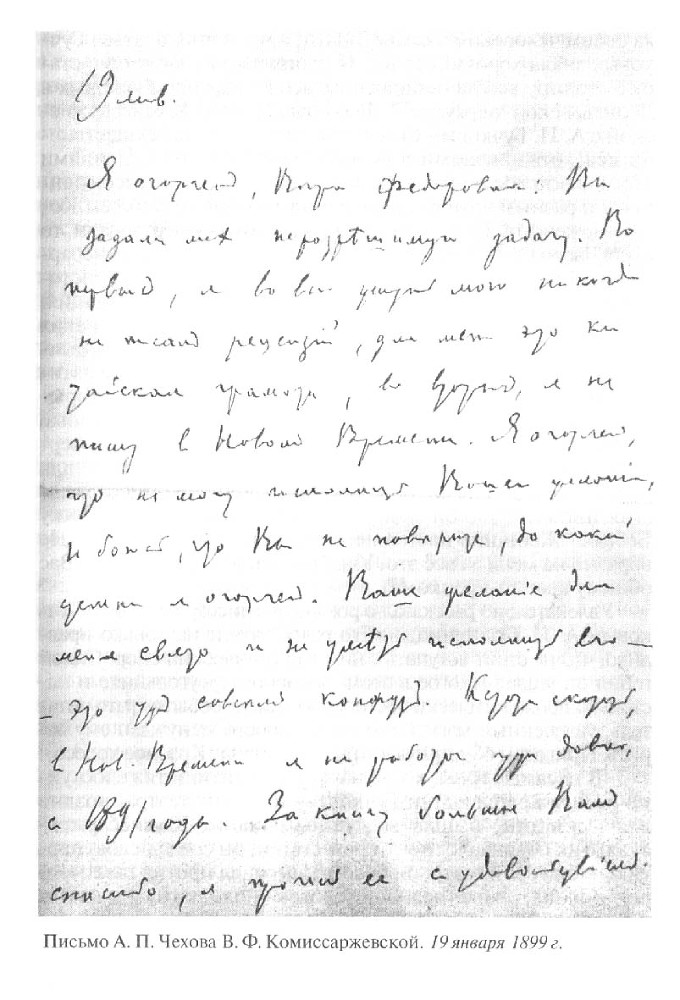 19 янв.
Я огорченъ, Вера Федоровна. Вы
задали мнѣ неразрѣшимую задачу. Во
первыхъ, я во всю жизнь мою никогда
не писалъ рецензій, для меня это ки
тайская грамота, во вторыхъ, я не
пишу в Новомъ Времени. Я огорченъ,
что не могу исполнить Вашего желанія,
и боюсь, что Вы не повѣрите, до какой
степени я огорченъ. Ваше желаніе для
меня свято и не умѣть исполнить его —
— это ужъ совсѣмъ конфузъ. Кстати сказать,
в Нов. Времени я не работаю уже давно,
с 1891 года. За книгу большое Вамъ
спасибо, я прочелъ ее с удовольствіемъ.
Письмо А. П. Чехова В. Ф. Комиссаржевской. 19 января 1899 г.